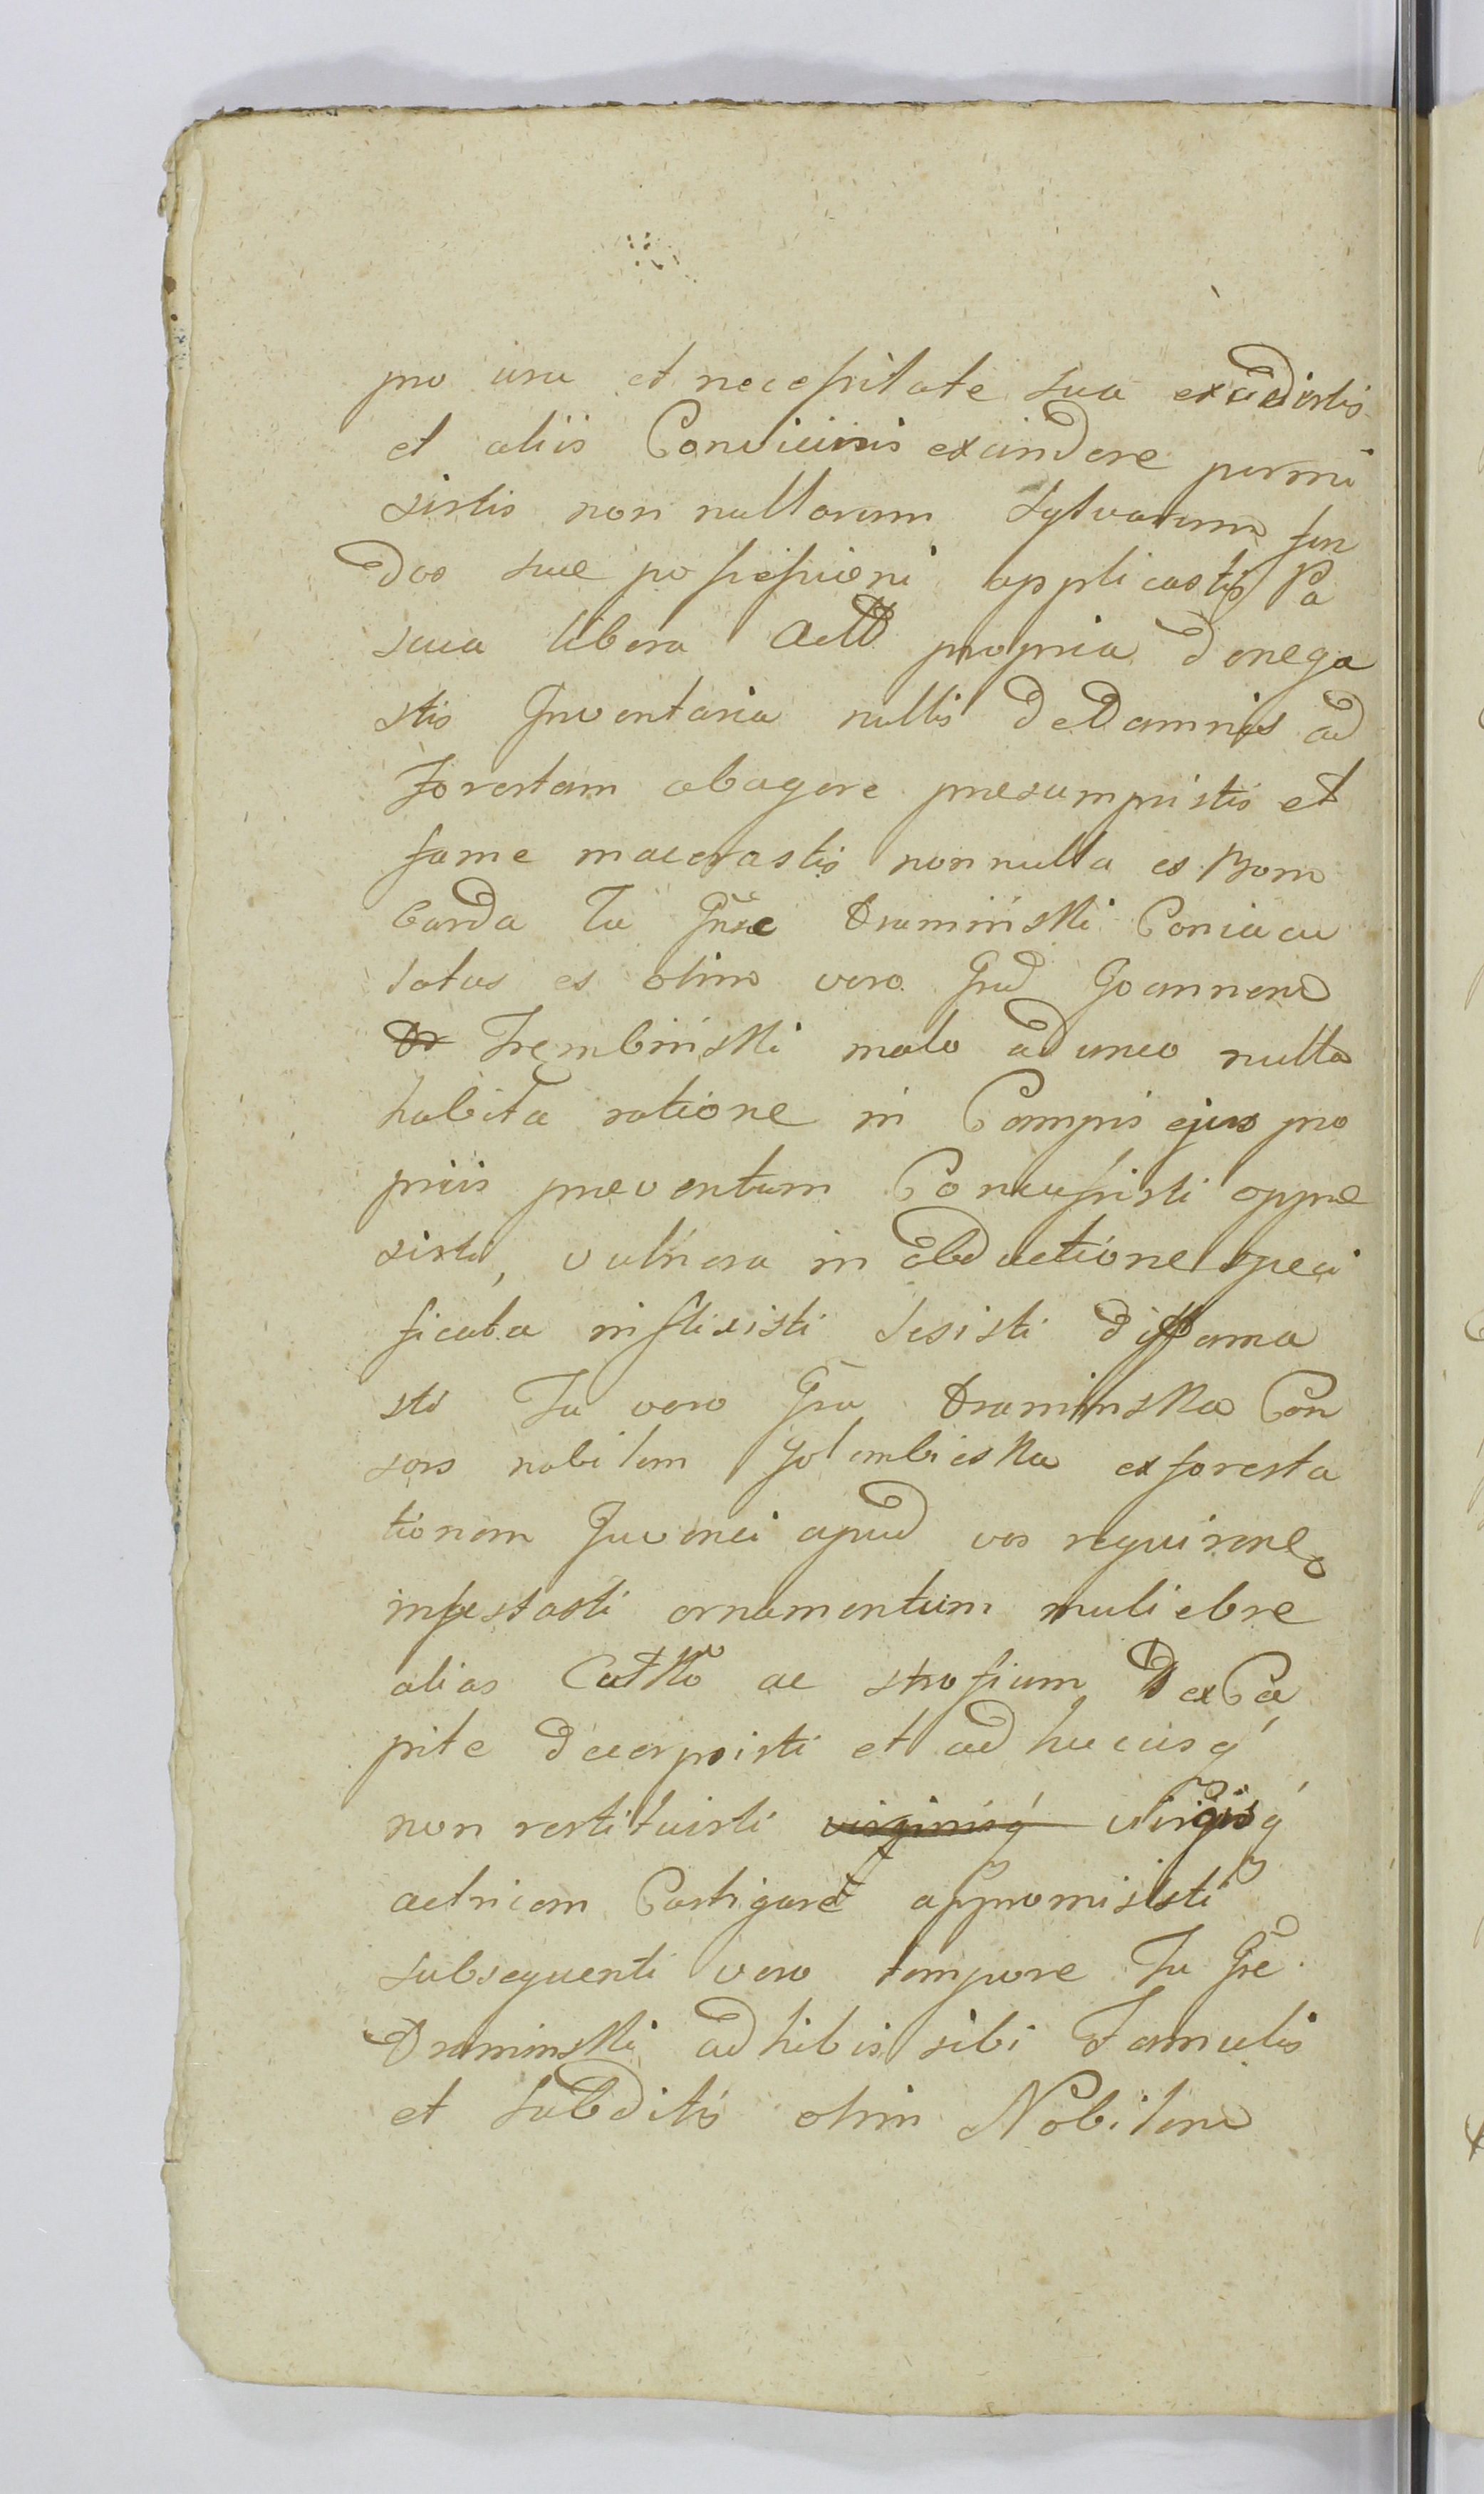 pro usu et necessitate sua excidistis
et aliis Convicinis excindere permi
sistis non nullorum Sylvarum fun
dos suae possessioni applicastis Pa
scua libera Actt propria denega
stis Inventaria nullis de Damnis ad
Forestam abagere praesumpsistis et
fame macerastis non nulla es Bom
barda Tu Gnse Draminski Coniacu
latus es olim vero Gnd Joannem
Trembinski malo ad unco nulla
habita ratione in Campis ejus pro
priis praeventum Concussisti oppre
sisti, vulnera in obductione speci
ficata inflixisti Lesisti diffama
sti Tu vero Gna Draminska Con
sors nobilem Golembieska exforesta
tionem Juvenci apud vos requirene
infestasti ornamentum muliebre
alias Catko ac strofium ex Ca
pite decerpsisti et ad hucusq
non restituisti virginisq virgisq
actricem Castigare appromisisti
subsequenti vero tempore Tu Gne
Draminski adhibis sibi Famulis
et Subditis olim Nobilem